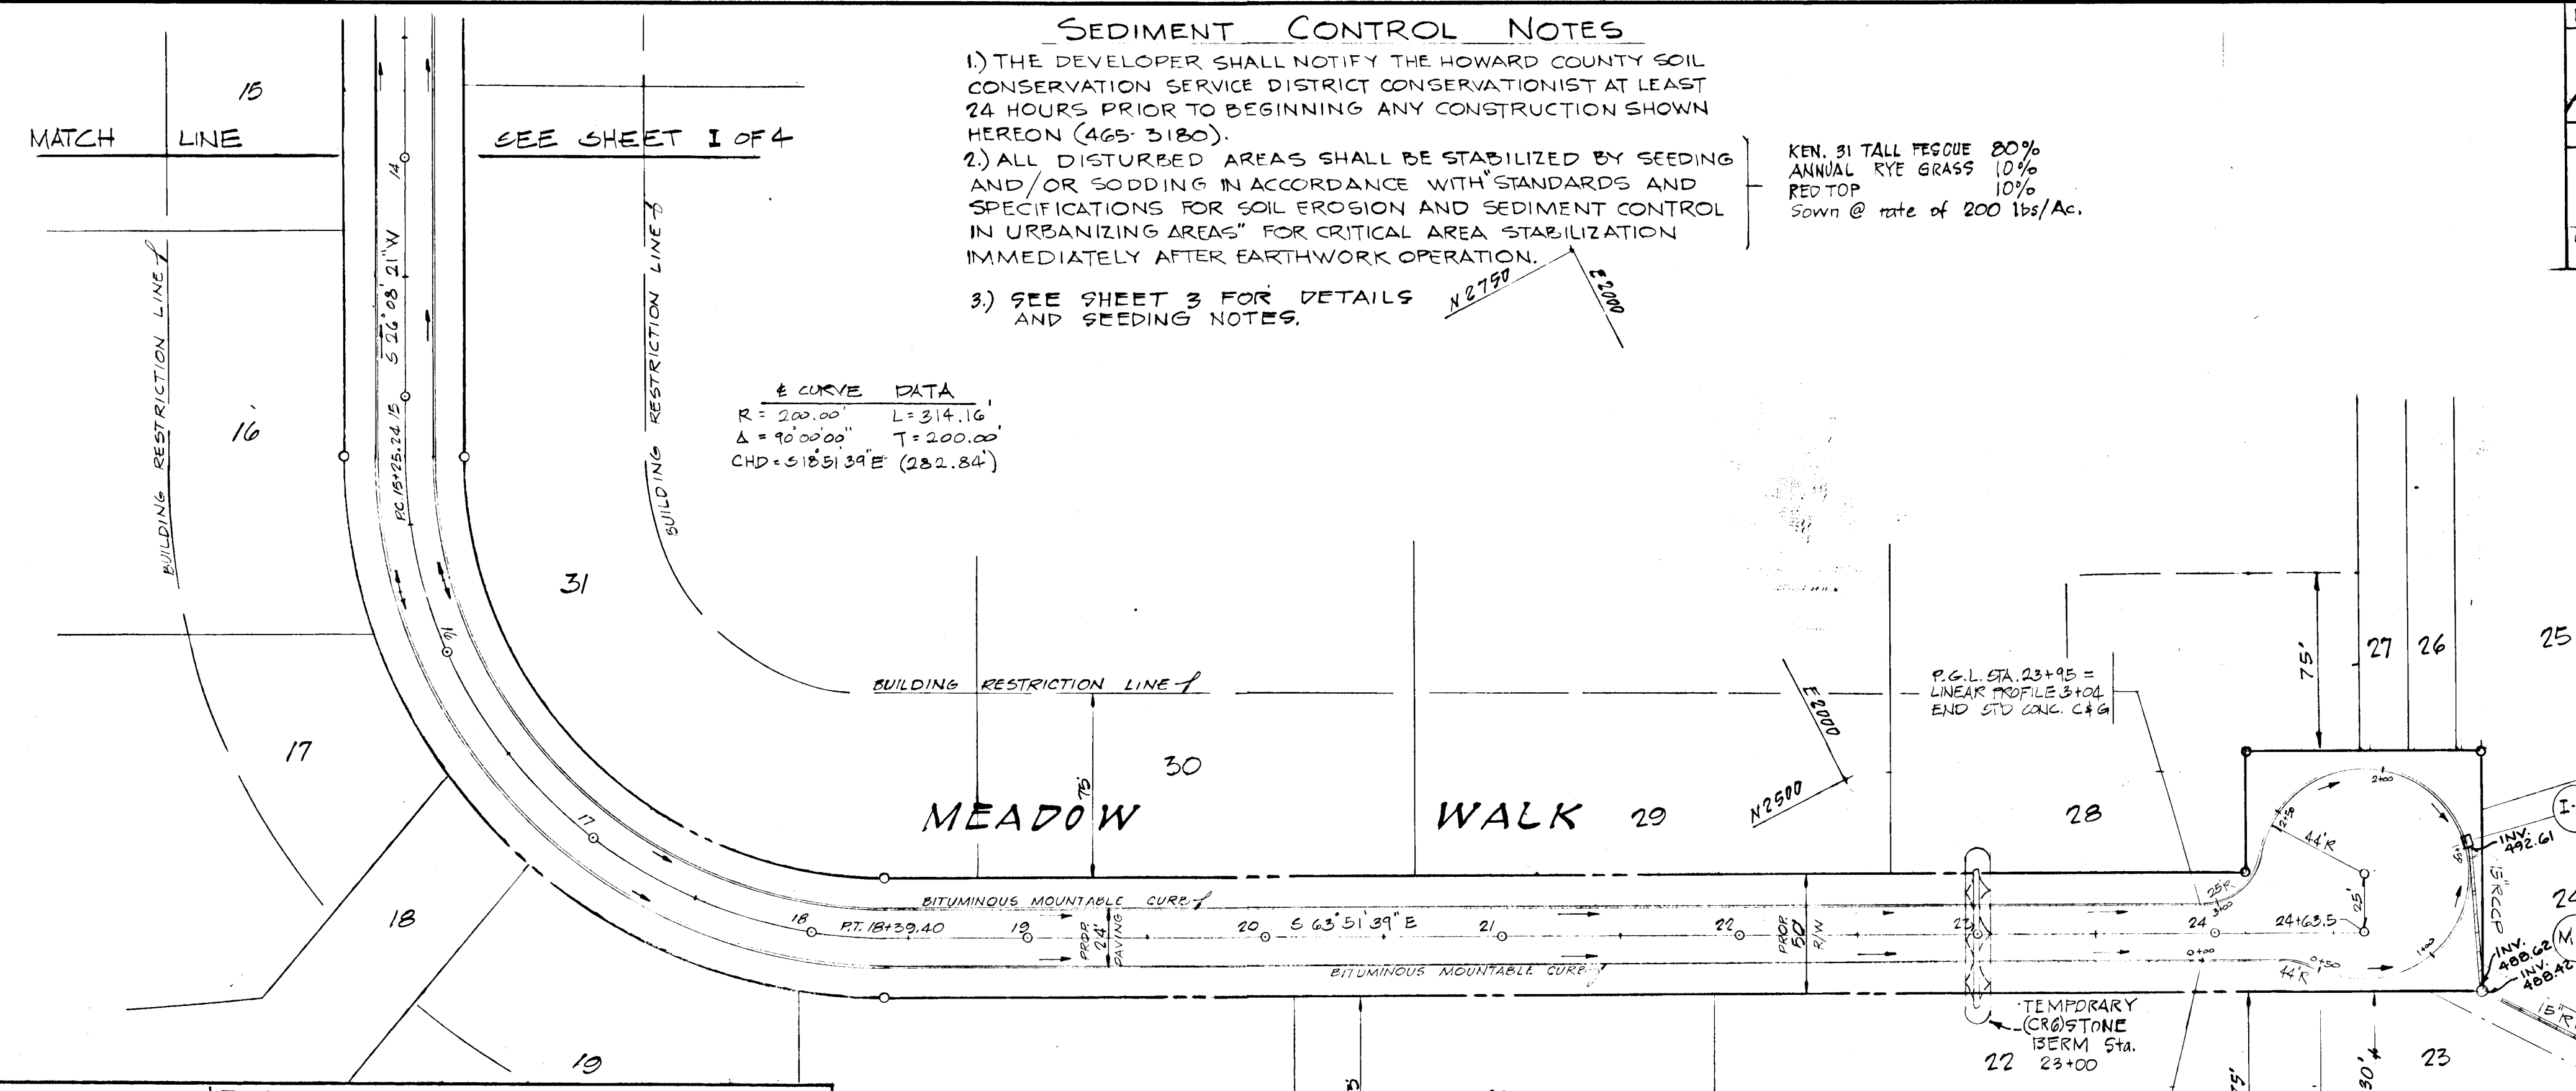 SEDIMENT CONTROL NOTES
1.) THE DEVELOPER SHALL NOTIFY THE HOWARD COUNTY SOIL
CONSERVATION SERVICE DISTRICT CONSERVATIONIST AT LEAST
24 HOURS PRIOR TO BEGINNING ANY CONSTRUCTION SHOWN
HEREON (465-3180).
2.) ALL DISTURBED AREAS SHALL BE STABILIZED BY SEEDING
AND/OR SODDING IN ACCORDANCE WITH "STANDARDS AND
SPECIFICATIONS FOR SOIL EROSION AND SEDIMENT CONTROL
IN URBANIZING AREAS" FOR CRITICAL AREA STABILIZATION
IMMEDIATELY AFTER EARTHWORK OPERATION.
3.) SEE SHEET 3 FOR DETAILS
AND SEEDING NOTES.
KEN. 31 TALL FESCUE 80%
ANNUAL RYE GRASS 10%
RED TOP 10%
Sown @ rate of 200 lbs/Ac.
N 2750
E 2000
15
MATCH LINE
SEE SHEET 1 OF 4
14
S 26° 08' 21" W
P.C. 15+25.24
15
BUILDING RESTRICTION LINE
BUILDING RESTRICTION LINE
16
℄ CURVE DATA
R = 200.00' L = 314.16'
Δ = 90°00'00" T = 200.00'
CHD = S 18°51'39" E (282.84')
31
16
17
17
18
19
BUILDING RESTRICTION LINE
75'
30
MEADOW WALK
29
E 2000
N 2500
28
P.G.L. STA. 23+95 =
LINEAR PROFILE 3+04
END STD CONC. C & G
75'
27
26
25
BITUMINOUS MOUNTABLE CURB
18
P.T. 18+39.40
19
PROP.
24'
PAVING
20
S 63° 51' 39" E
21
22
PROP.
50'
R/W
23
24
24+63.5
BITUMINOUS MOUNTABLE CURB
2+00
2+50
44'R
1+50
25'R
3+00
25'
1+00
0+00
0+50
44'R
INV.
492.61
15" RCCP
INV.
488.62
INV.
488.42
I-
24
M
15" R
TEMPORARY
(CR6) STONE
BERM Sta.
23+00
22
23
30'